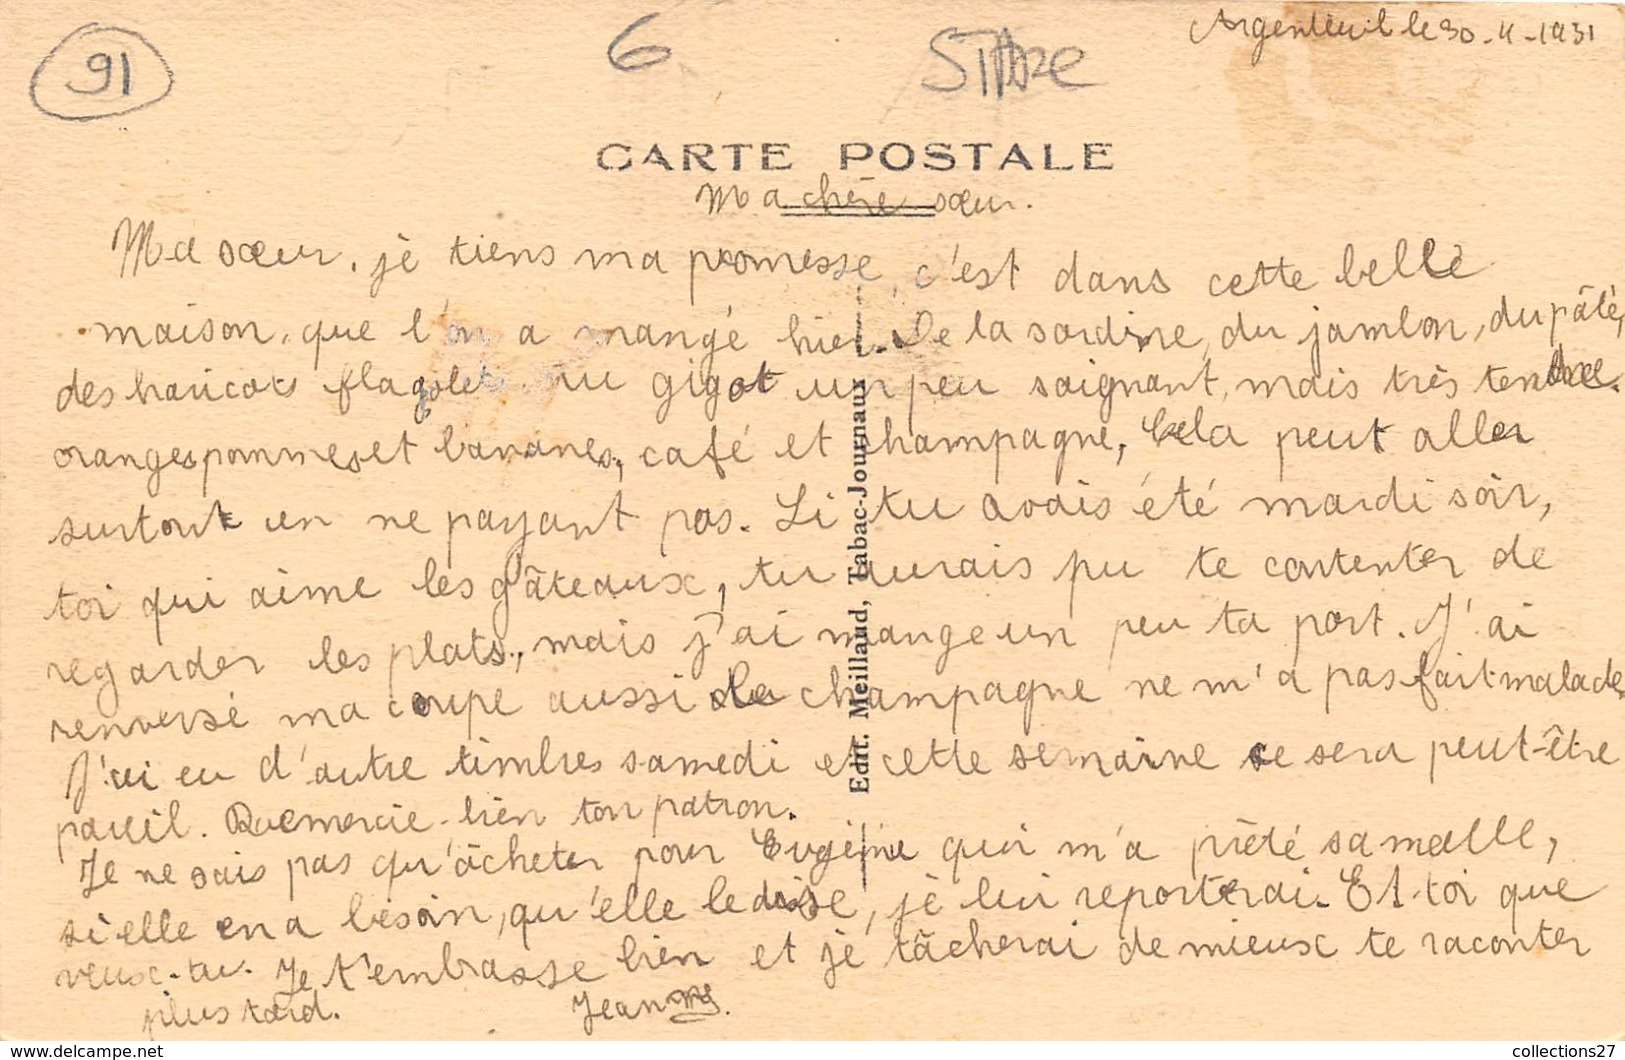 Argenteuil le 30-4-1931
91
6
CARTE POSTALE
Ma chère sœur.
Ma sœur, je tiens ma promesse, c'est dans cette belle
maison, que l'on a mangé hier. De la sardine, du jambon, du pâté,
des haricots flageolets au gigot un peu saignant, mais très tendre.
oranges pommes et bananes, café et champagne, Cela peut aller
surtout en ne payant pas. Si tu avais été mardi soir,
toi qui aime les gâteaux, tu aurais pu te contenter de
regarder les plats, mais j'ai mange un peu ta part. J'ai
renversé ma coupe aussi le champagne ne m'a pas fait malade.
J'ai eu d'autre timbres samedi et cette semaine ce sera peut-être
pareil. Remercie-bien ton patron.
Je ne sais pas qu'âcheter pour Eugénie qui m'a prêté sa malle,
si elle en a besoin, qu'elle le dise, je lui reporterai. Et-toi que
veux-tu. Je t'embrasse bien et je tâcherai de mieux te raconter
plus tard.
Jeanne.
Edit. Meillaud, Tabac-Journaux
collections27